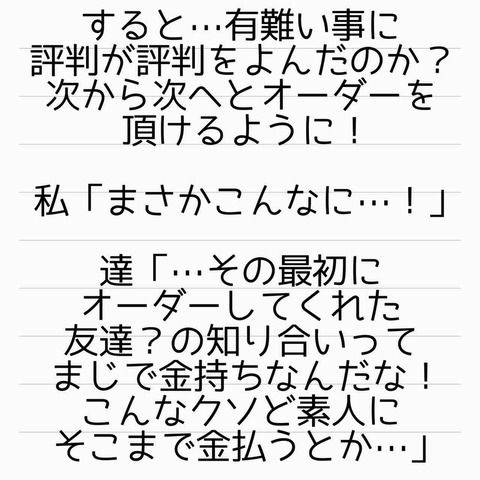 すると…有難い事に
評判が評判をよんだのか？
次から次へとオーダーを
頂けるように！
私「まさかこんなに…！」
達「…その最初に
オーダーしてくれた
友達？の知り合いって
まじで金持ちなんだな！
こんなクソど素人に
そこまで金払うとか…」